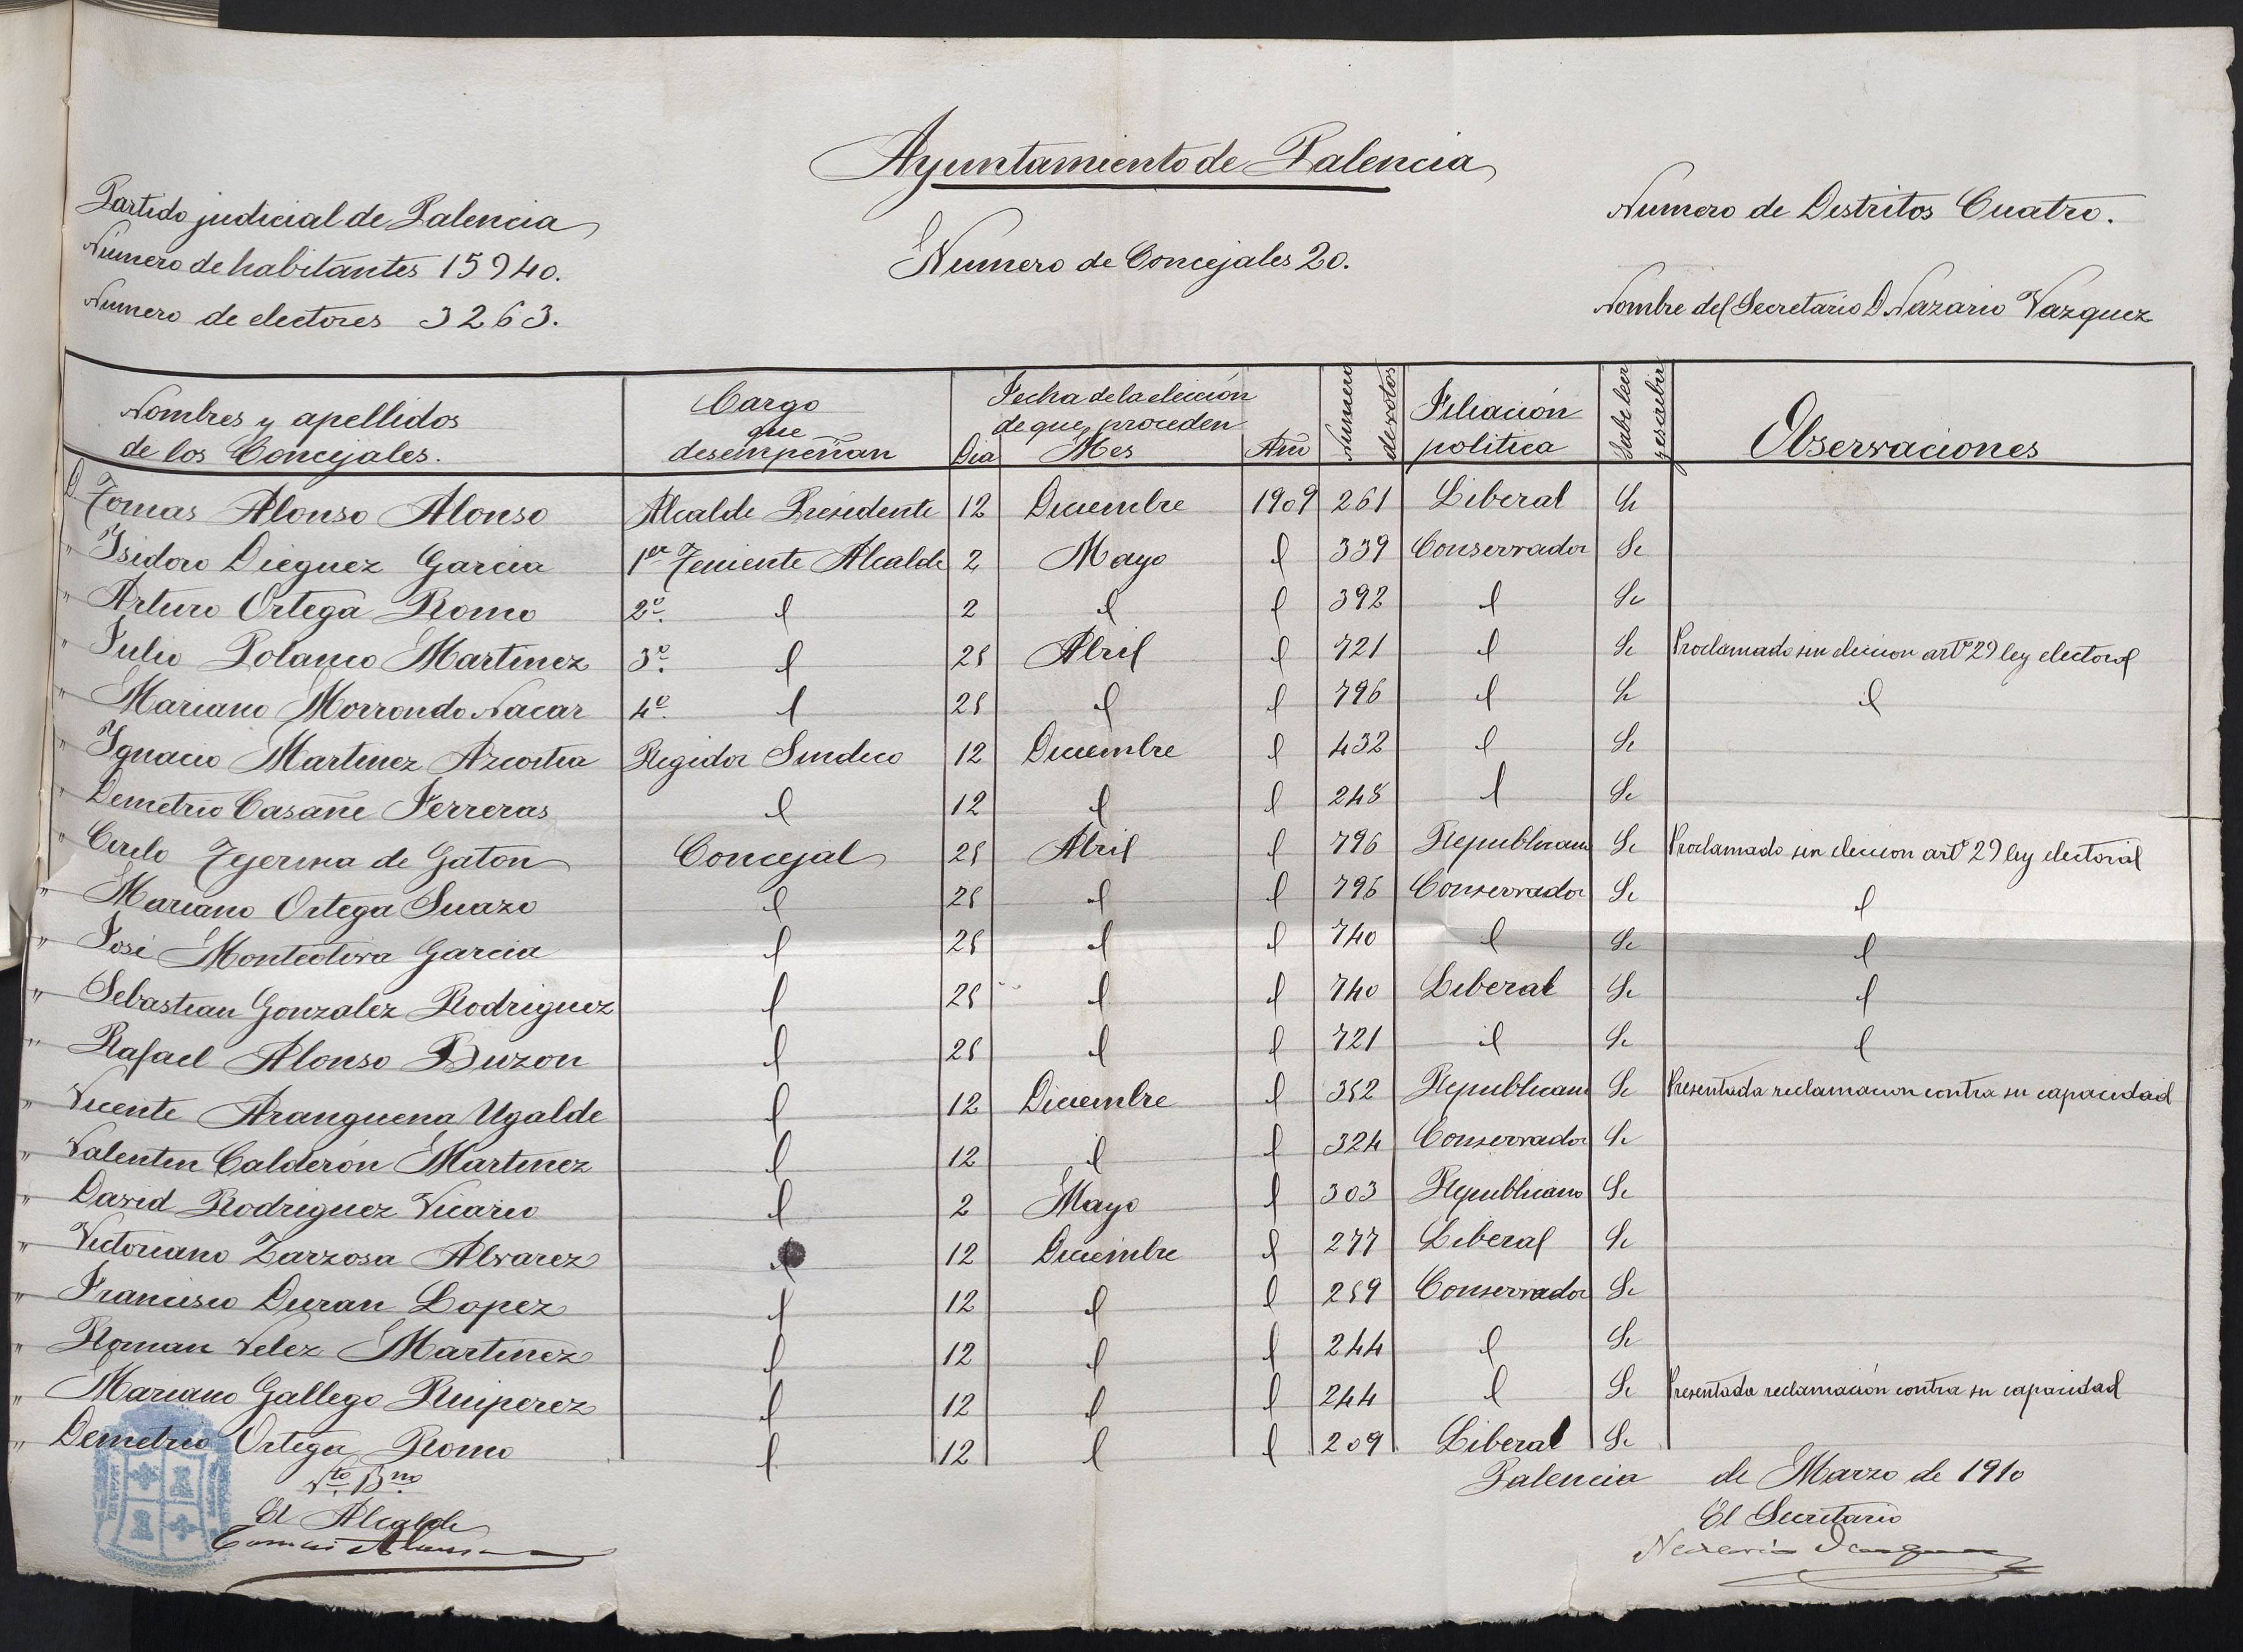 Ayuntamiento de Palencia
Partido judicial de Palencia
Numero de habitantes 15940.
Numero de electores 3263.
Numero de Concejales 20.
Numero de Distritos Cuatro.
Nombre del Secretario D Nazario Vazquez
Nombres y apellidos de los Concejales. Cargo que desempeñan Fecha de la elección de que proceden Dia Mes Año Numero de votos Filiación politica Sabe leer y escribir Observaciones
D Tomas Alonso Alonso Alcalde Presidente 12 Diciembre 1909 261 Liberal Si
" Isidoro Dieguez Garcia 1er Teniente Alcalde 2 Mayo id 339 Conservador Si
" Arturo Ortega Romo 2º id 2 id id 392 id Si
" Julio Polanco Martinez 3º id 25 Abril id 721 id Si Proclamado sin eleccion artº 29 ley electoral
" Mariano Morrondo Nacar 4º id 25 id id 796 id Si id
" Ignacio Martinez Azcoitia Regidor Sindico 12 Diciembre id 432 id Si
" Demetrio Casañe Ferreras id 12 id id 248 id Si
" Cirilo Tejerina de Gaton Concejal 25 Abril id 796 Republicano Si Proclamado sin eleccion artº 29 ley electoral
" Mariano Ortega Suazo id 25 id id 796 Conservador Si id
" José Monteoliva Garcia id 25 id id 740 id Si id
" Sebastian Gonzalez Rodriguez id 25 id id 740 Liberal Si id
" Rafael Alonso Buzon id 25 id id 721 id Si id
" Vicente Aranguena Ugalde id 12 Diciembre id 352 Republicano Si Presentada reclamacion contra su capacidad
" Valentin Calderón Martinez id 12 id id 324 Conservador Si
" David Rodriguez Vicario id 2 Mayo id 303 Republicano Si
" Victoriano Zarzosa Alvarez id 12 Diciembre id 277 Liberal Si
" Francisco Duran Lopez id 12 id id 259 Conservador Si
" Roman Velez Martinez id 12 id id 244 id Si
" Mariano Gallego Ruiperez id 12 id id 244 id Si Presentada reclamación contra su capacidad
" Demetrio Ortega Romo id 12 id id 209 Liberal Si
Vto Bno
El Alcalde
Tomas Alonso
Palencia de Marzo de 1910
El Secretario
Nazario Vazquez